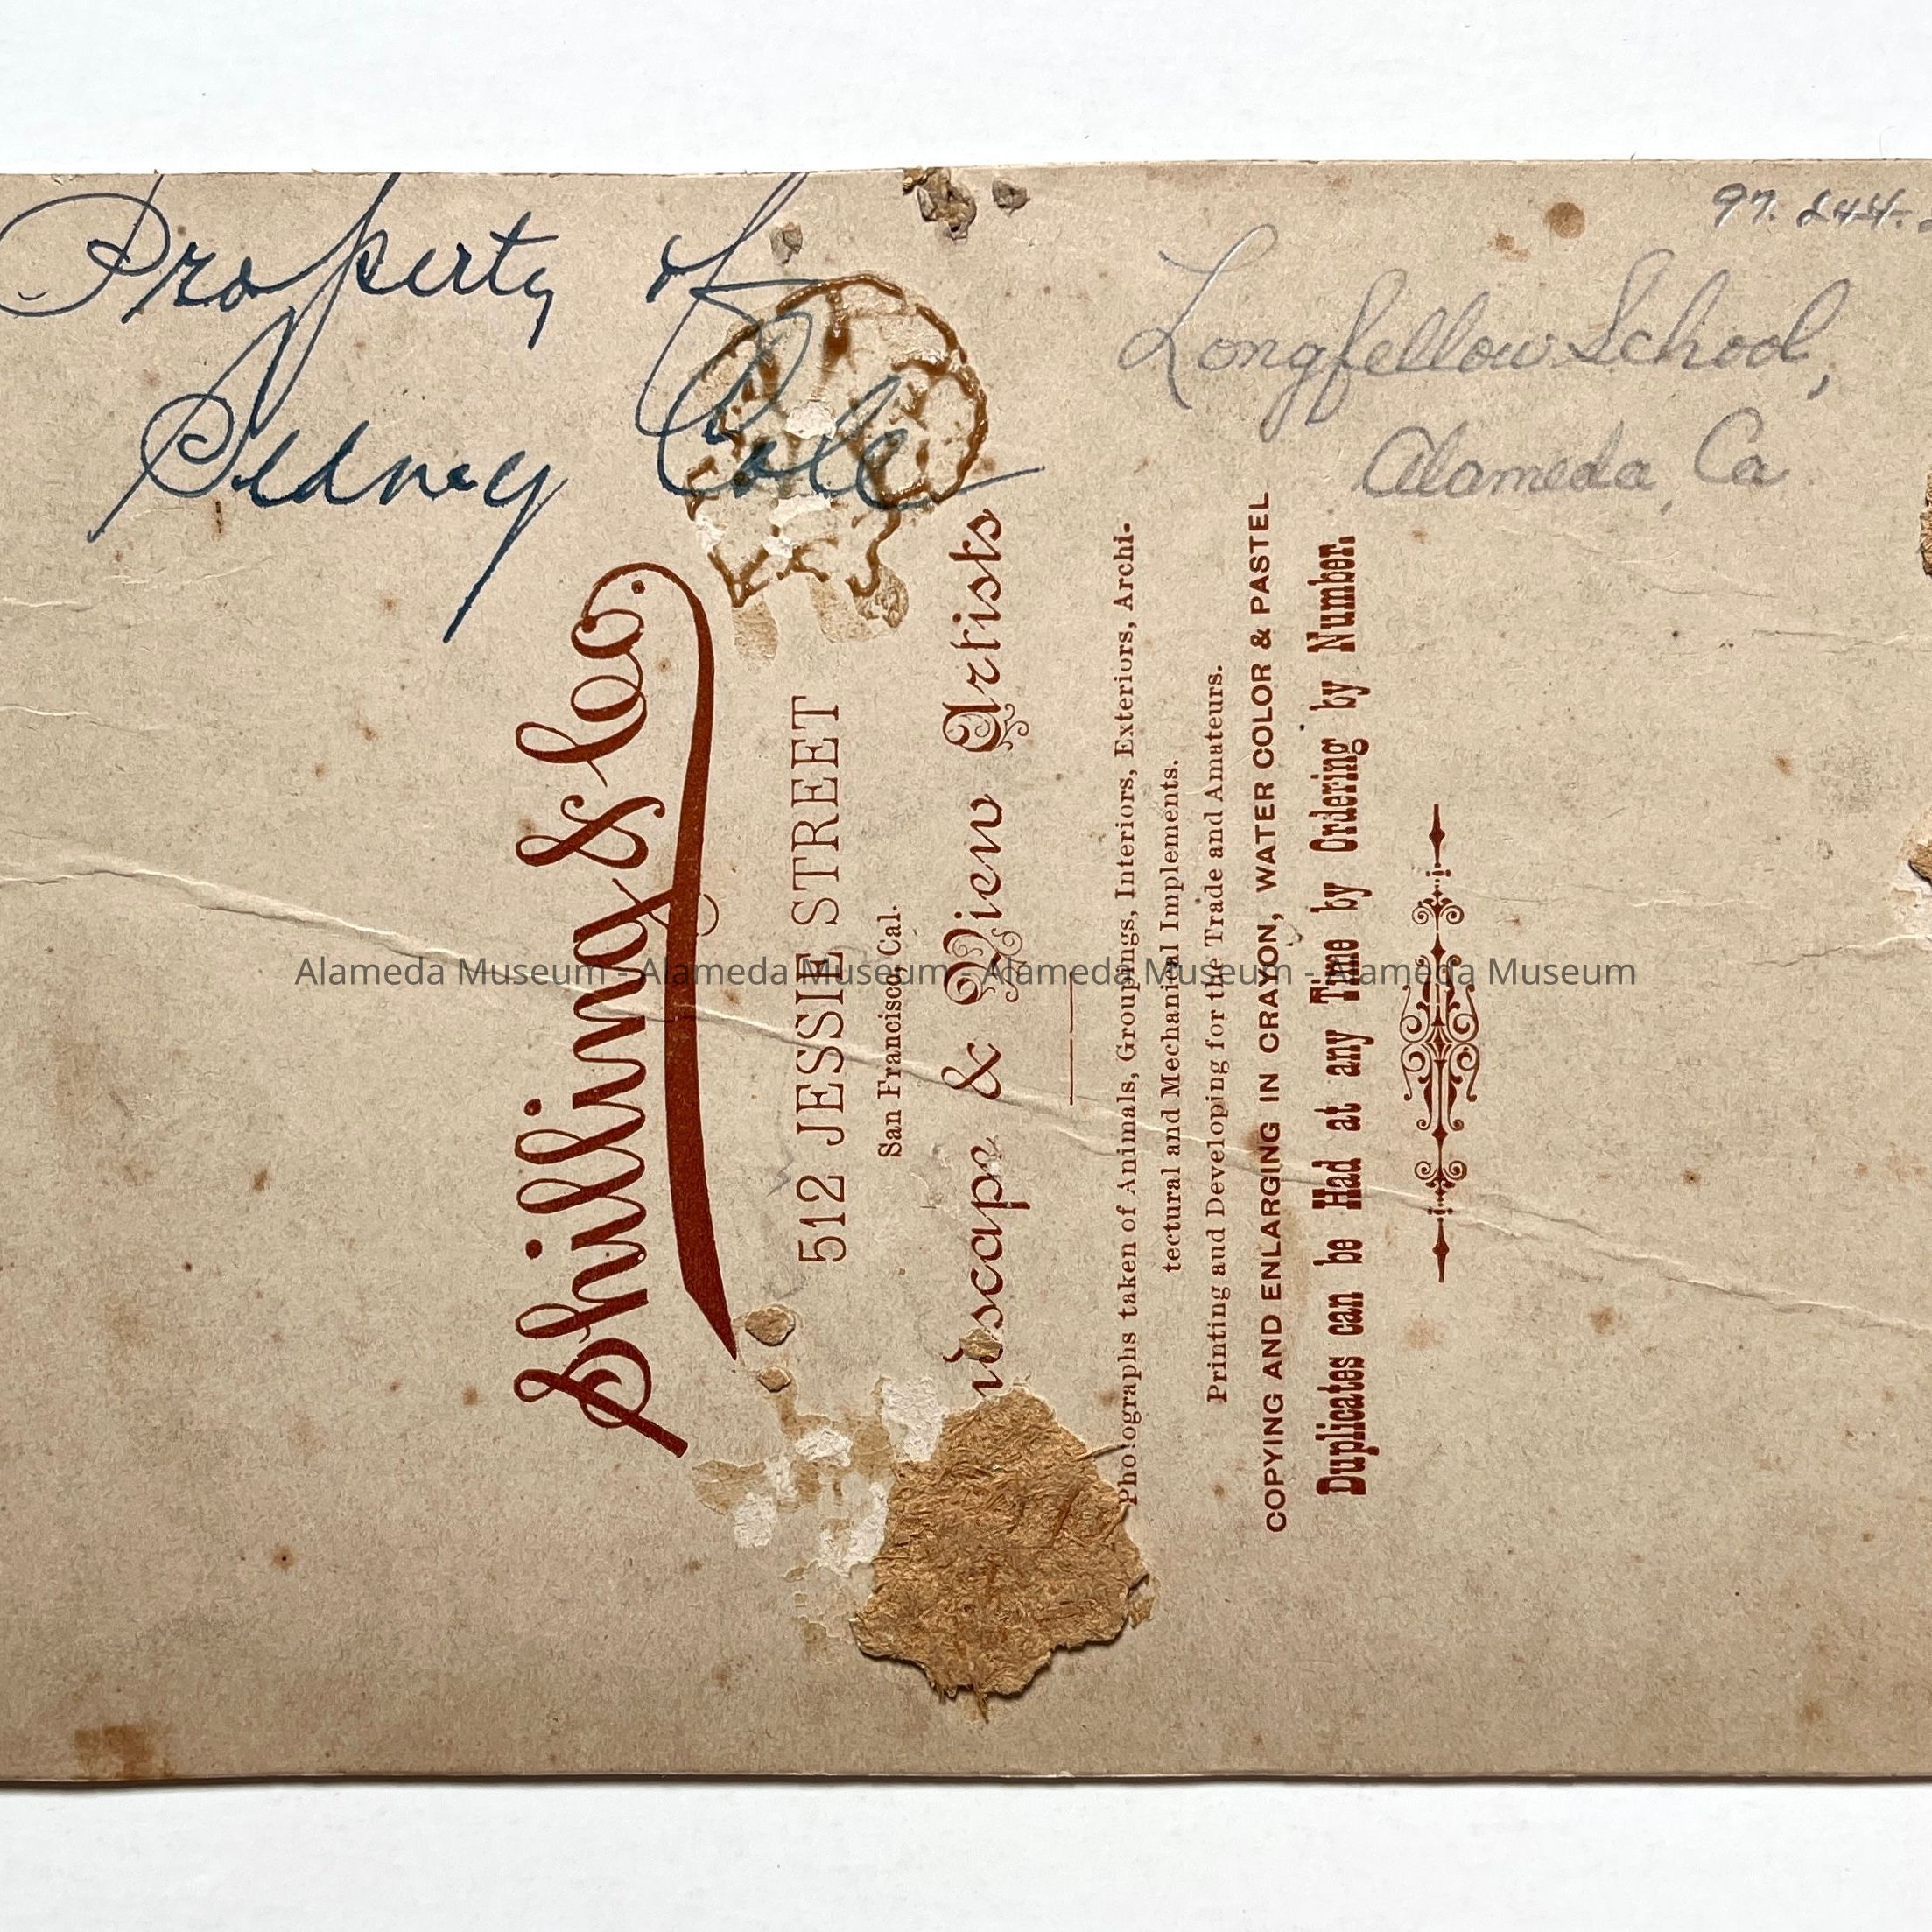 Property of
Sidney Cole
Longfellow School,
Alameda, Ca
97.244.
Shilling & Co.
512 JESSIE STREET
San Francisco, Cal.
ndscape & View Artists
Photographs taken of Animals, Groupings, Interiors, Exteriors, Archi-
tectural and Mechanical Implements.
Printing and Developing for the Trade and Amateurs.
COPYING AND ENLARGING IN CRAYON, WATER COLOR & PASTEL
Duplicates can be Had at any Time by Ordering by Number.
Alameda Museum - Alameda Museum - Alameda Museum - Alameda Museum